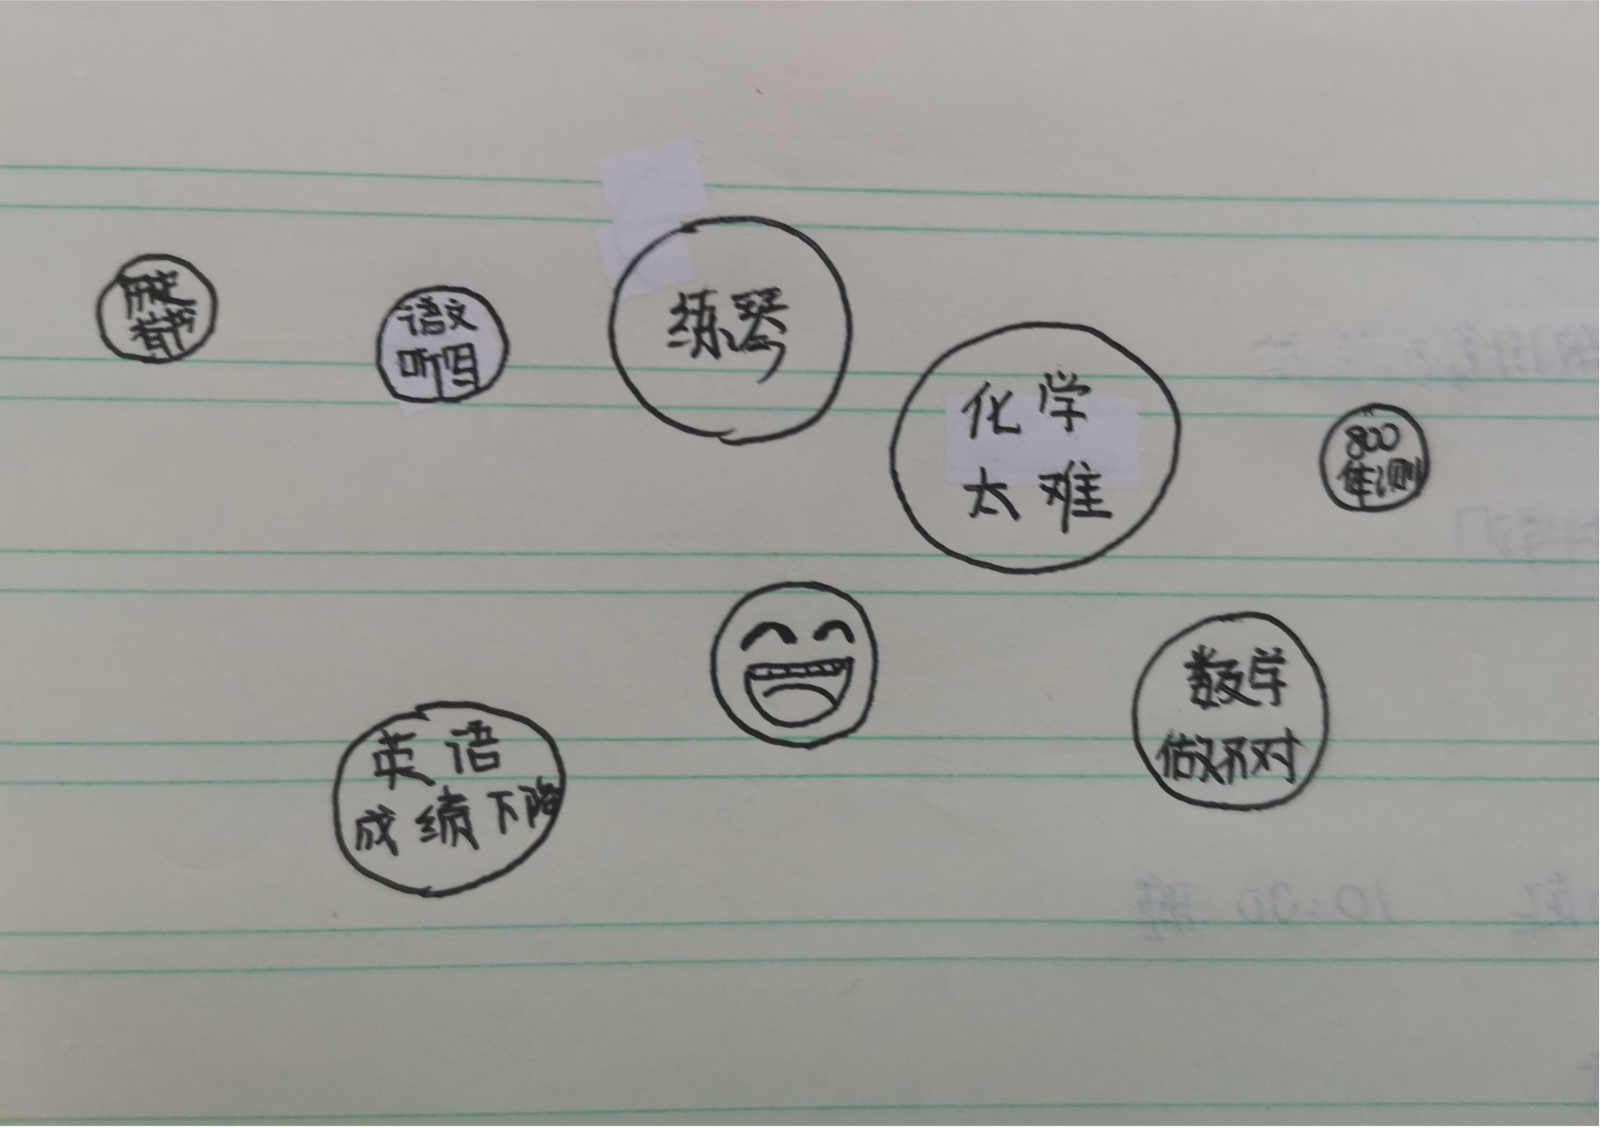 历史
背书
语文
听写
练琴
化学
太难
800
体测
英语
成绩下降
数学
做不对
10:00 睡